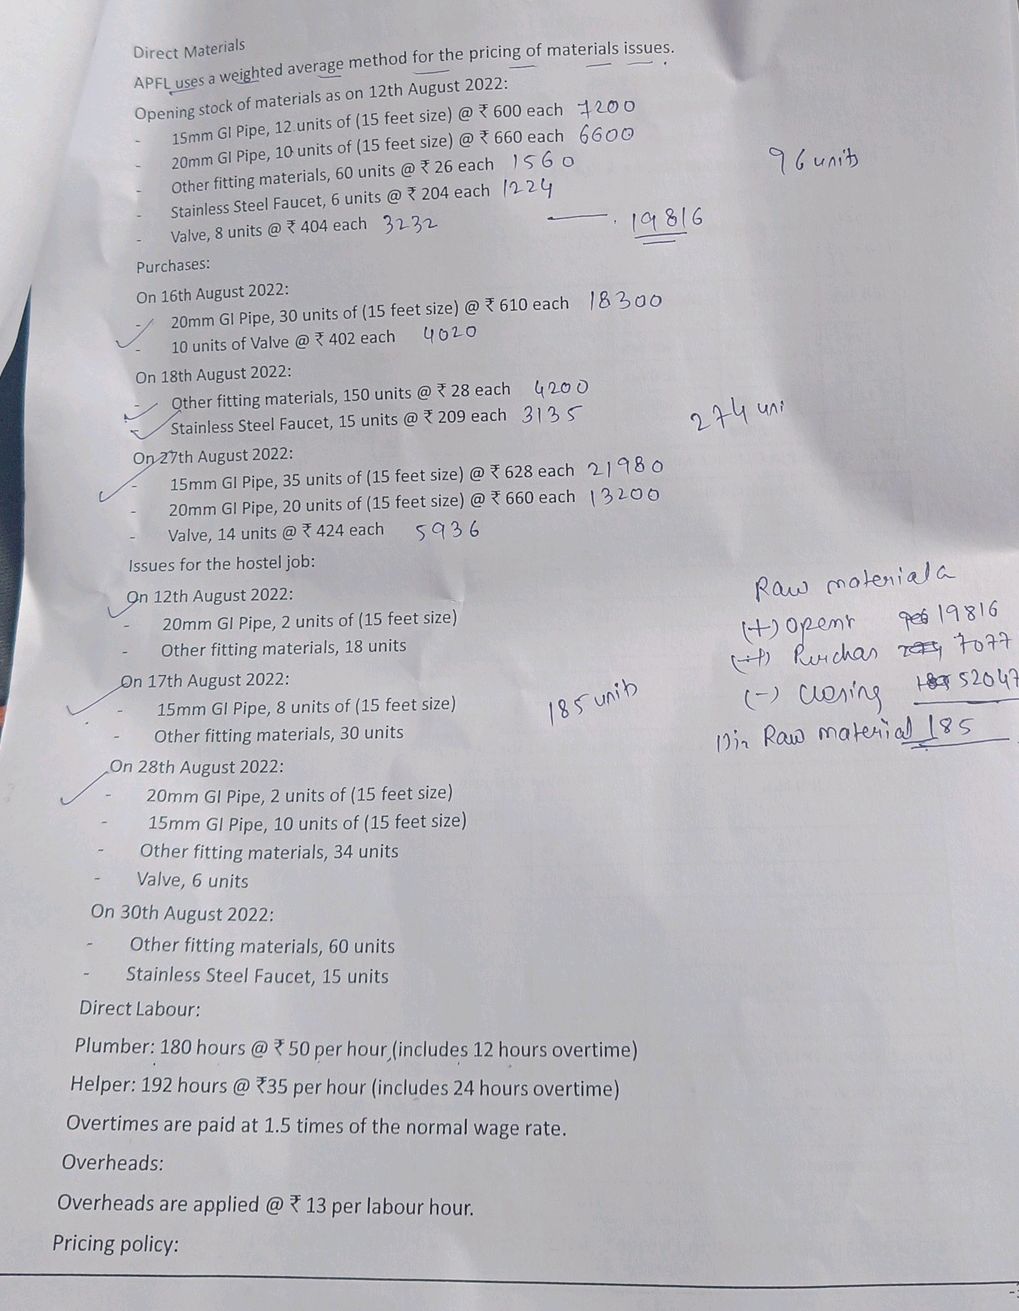 Direct Materials
APFL uses a weighted average method for the pricing of materials issues.
Opening stock of materials as on 12th August 2022:
- 15mm GI Pipe, 12 units of (15 feet size) @ ₹ 600 each 7200
- 20mm GI Pipe, 10 units of (15 feet size) @ ₹ 660 each 6600
- Other fitting materials, 60 units @ ₹ 26 each 1560
96 units
- Stainless Steel Faucet, 6 units @ ₹ 204 each 1224
- Valve, 8 units @ ₹ 404 each 3232
19816
Purchases:
On 16th August 2022:
- 20mm GI Pipe, 30 units of (15 feet size) @ ₹ 610 each 18300
- 10 units of Valve @ ₹ 402 each 4020
On 18th August 2022:
- Other fitting materials, 150 units @ ₹ 28 each 4200
- Stainless Steel Faucet, 15 units @ ₹ 209 each 3135
274 uni
On 27th August 2022:
- 15mm GI Pipe, 35 units of (15 feet size) @ ₹ 628 each 21980
- 20mm GI Pipe, 20 units of (15 feet size) @ ₹ 660 each 13200
- Valve, 14 units @ ₹ 424 each 5936
Issues for the hostel job:
On 12th August 2022:
- 20mm GI Pipe, 2 units of (15 feet size)
- Other fitting materials, 18 units
On 17th August 2022:
- 15mm GI Pipe, 8 units of (15 feet size)
- Other fitting materials, 30 units
185 units
Raw materiala
(+) Openr 19816
(+) Purchas 7077
(-) Closing 52047
Dir Raw material 185
On 28th August 2022:
- 20mm GI Pipe, 2 units of (15 feet size)
- 15mm GI Pipe, 10 units of (15 feet size)
- Other fitting materials, 34 units
- Valve, 6 units
On 30th August 2022:
- Other fitting materials, 60 units
- Stainless Steel Faucet, 15 units
Direct Labour:
Plumber: 180 hours @ ₹ 50 per hour (includes 12 hours overtime)
Helper: 192 hours @ ₹35 per hour (includes 24 hours overtime)
Overtimes are paid at 1.5 times of the normal wage rate.
Overheads:
Overheads are applied @ ₹ 13 per labour hour.
Pricing policy: